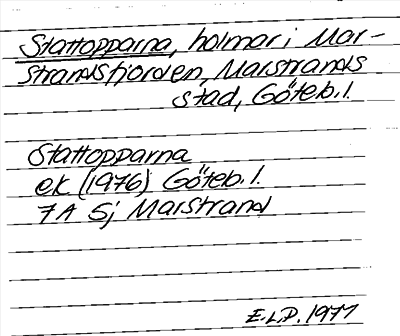 Stattopparna, holmar i Mar-
strandsfjorden, Marstrands
stad, Göteb. l.
Stattopparna
ek (1976) Göteb. l.
7A Sj Marstrand
E.L.P. 1977